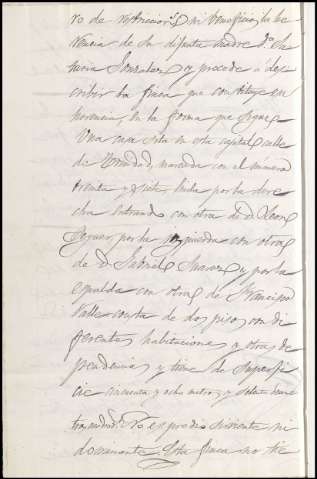 ro de restriccion ni beneficio, la he
rencia de su difunta madre Dª
Gonzalez, y procede a des
cribir la finca que constituye su
herencia, en la forma que sigue
Una casa sita en esta capital, calle
de Trinidad, marcada con el número
treinta y siete, linda por la dere
cha entrando con otra de D. Leon
por la izquierda con otra
de D. Gabriel Suarez, y por la
espalda con otra de Francisco
Valle consta de dos pisos, con di
ferentes habitaciones y otras de
pendencias y tiene de superfi
cie cincuenta y ocho metros y setenta
No es predio sirviente ni
dominante. Esta finca no tie